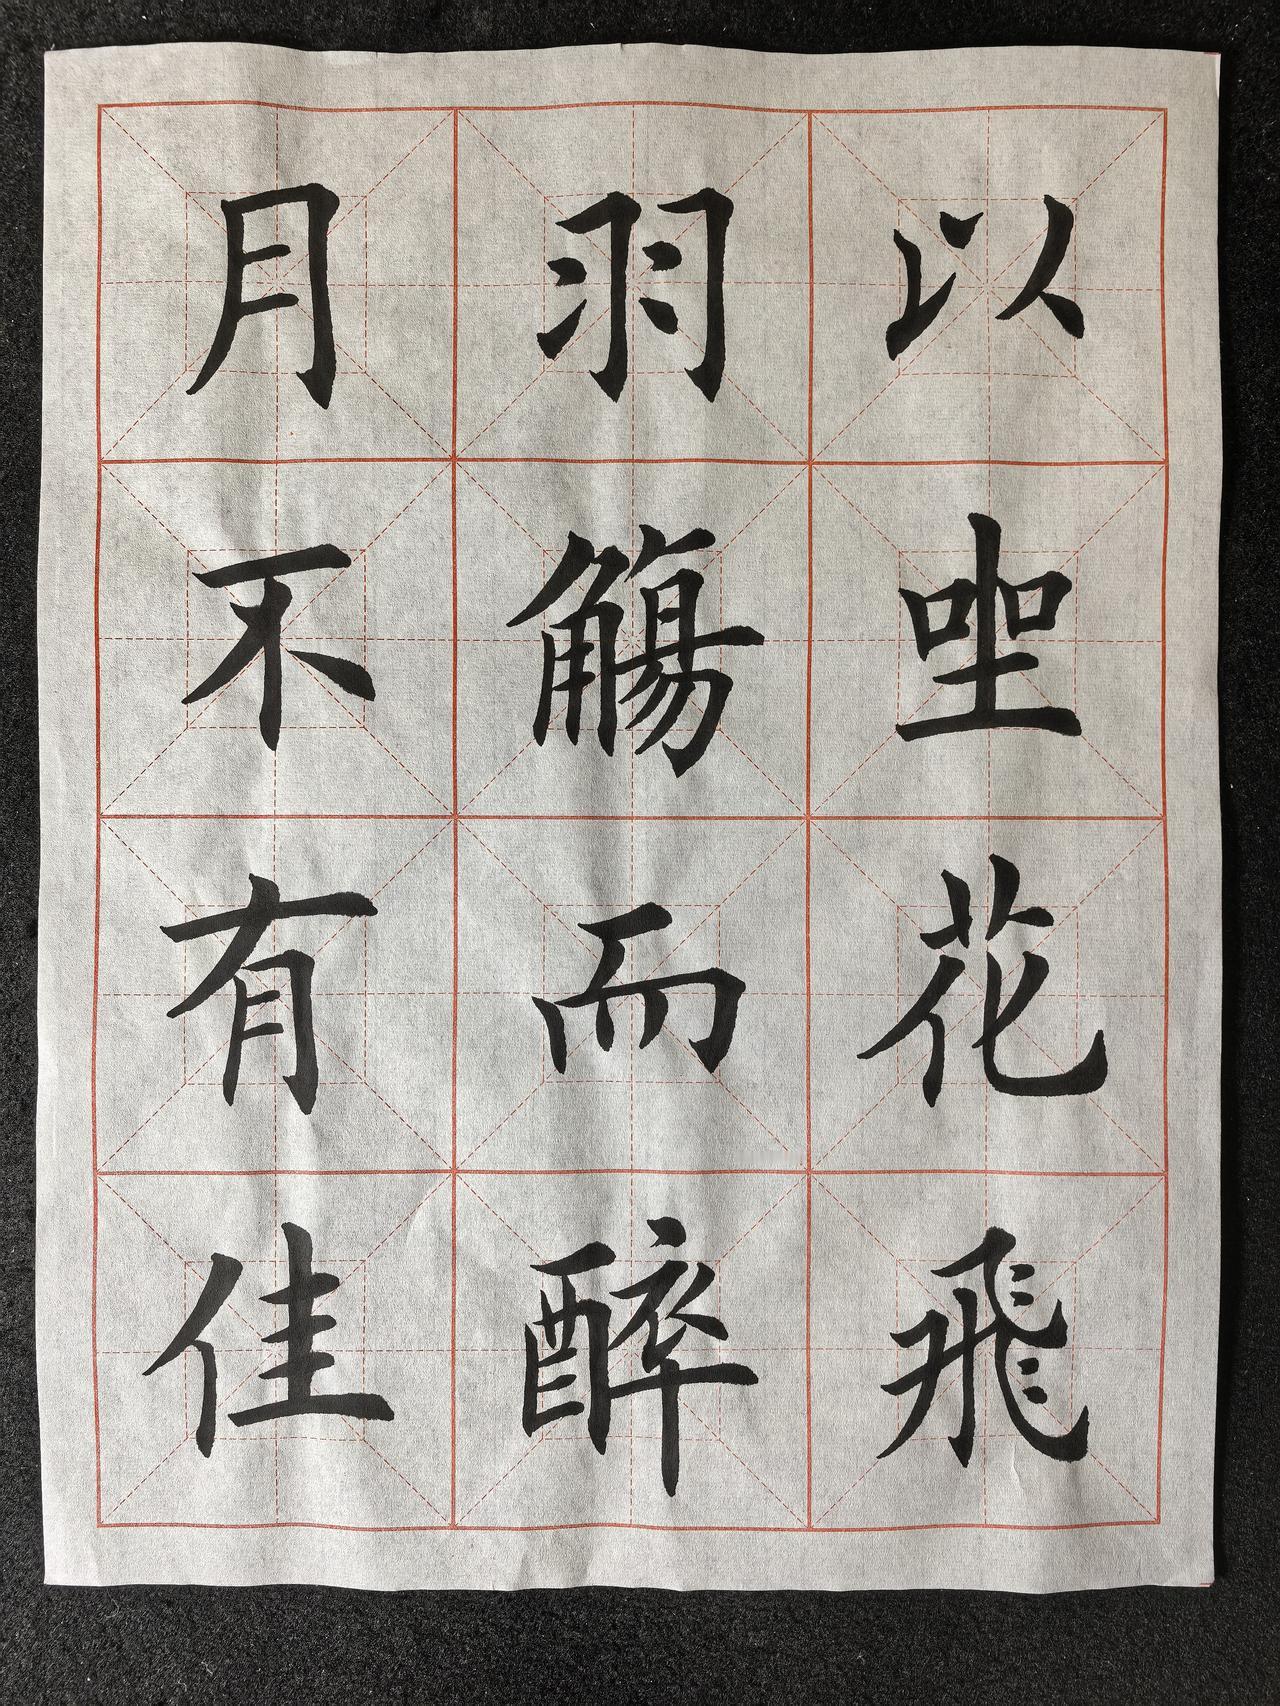 以坐花飛
羽觴而醉
月不有佳